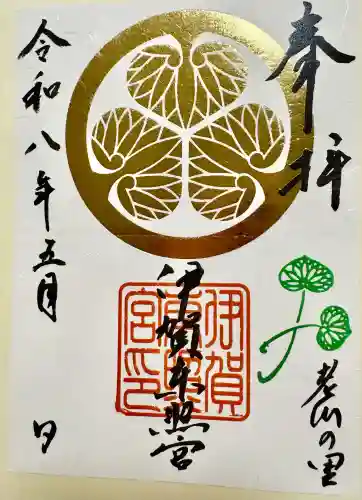 奉拝
老川の里
伊賀東照宮
伊賀東照宮印
令和八年五月 日